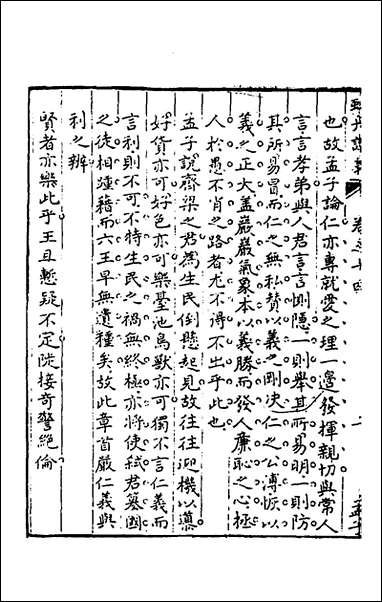 也故孟子論仁亦專就愛之理一邊發揮親切與常人
言言孝弟與人君言言惻隱一則舉其所易明一則防
其所易冒而仁之無私贊以義之剛決仁之公溥恢以
義之正大蓋巖巖氣象本以義勝而發人廉恥之心極
人於愚不肖之路者尤不得不出乎此也
孟子說齊梁之君爲生民倒懸起見故往往迎機以導
好貨亦可好色亦可樂臺池鳥獸亦可獨不言仁義而
言利則不可不特生民之禍無終極亦將使弑君簒國
之徒相踵藉而六王早無遺種矣故此章首嚴仁義與
利之辨
賢者亦樂此乎王且慙疑不定陡接奇警絕倫